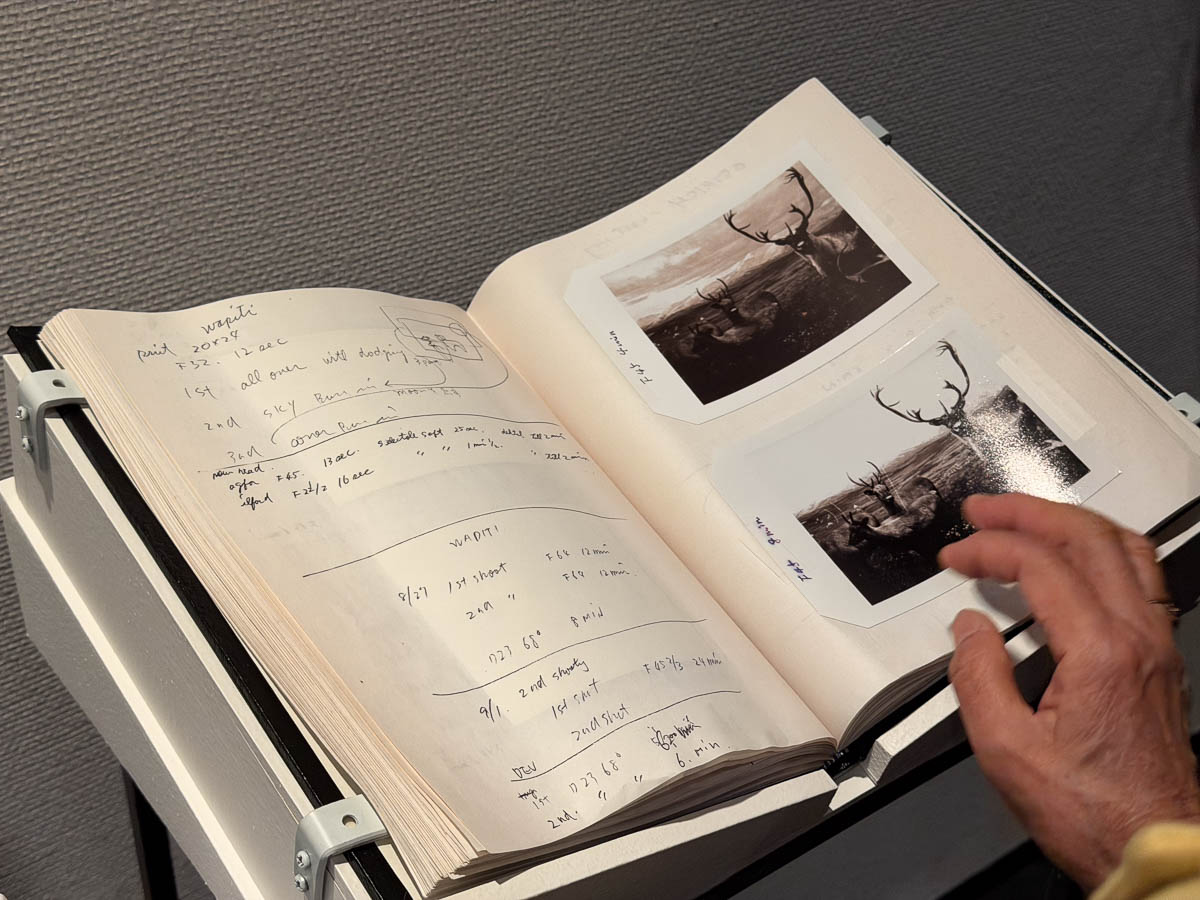 wapiti
print 20x24
F32. 12 sec
1st all over with dodging
2nd sky Burn in
3rd corner Burn in
new head.
agfa F45. 13 sec. selectole soft 25 sec. dektol 2 min
ilford F22 1/2 16 sec " " 1 min 1/2. " 2 min
WAPITI
8/27 1st shoot F64 12 min
2nd " F64 12 min.
D23 68° 8 MIN
9/1. 2nd shooting
1st shot F45 2/3 24 min
2nd shot
DEV
1st D23 68°
2nd. " " 6. min.
F45 4 min
F45 8 min